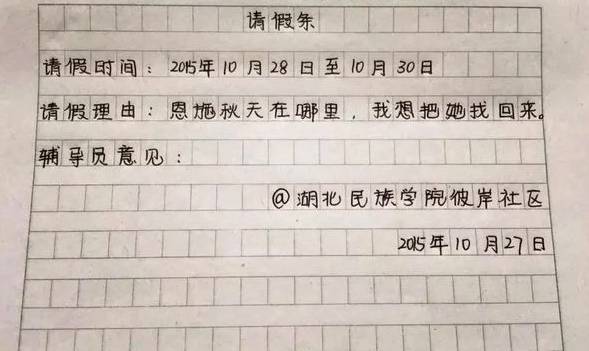 请假条
请假时间：2015年10月28日至10月30日
请假理由：恩施秋天在哪里，我想把她找回来。
辅导员意见：
@湖北民族学院彼岸社区
2015年10月27日